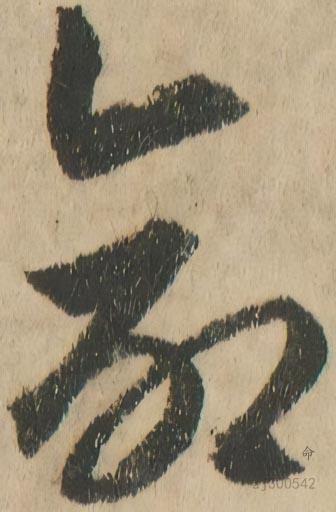 命
命
zj300542